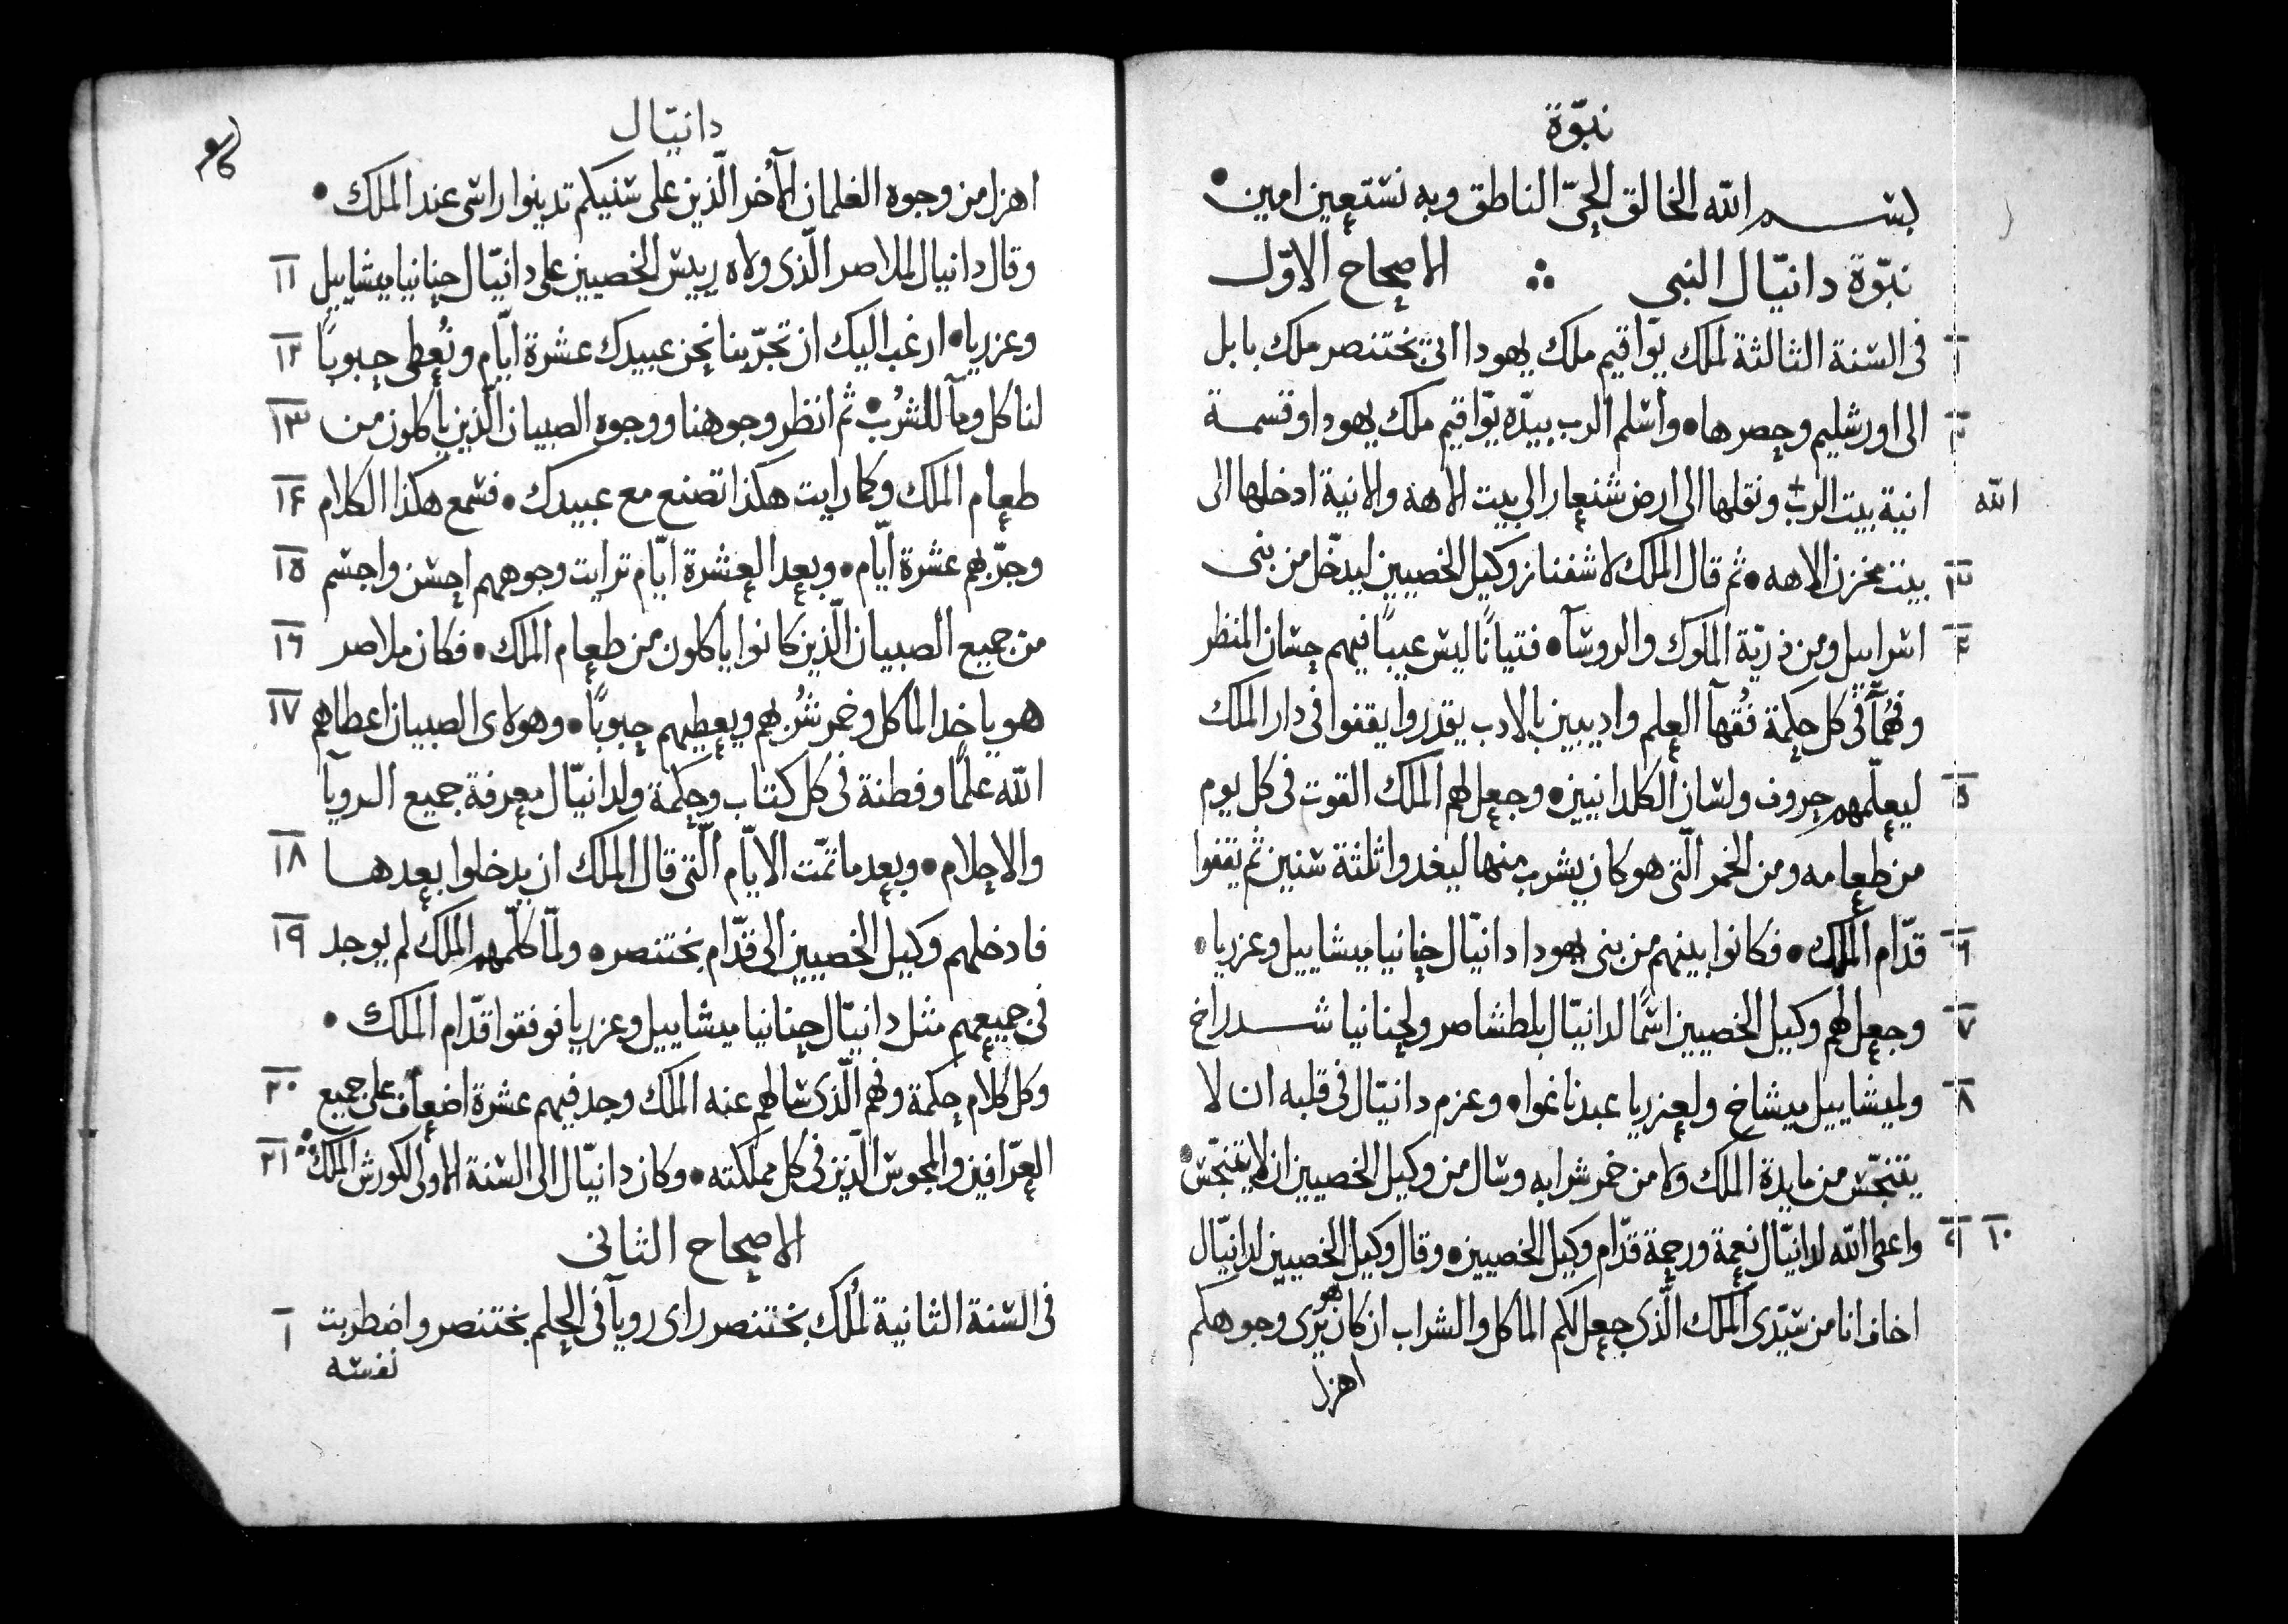 نبوّة
بســم الله الخالق الحيّ الناطق وبه نستعين امين
نبوّة دانيّال النبي ∴ الاصحاح الاوّل
١ فى السنة الثالثة لملك يوّاقيم ملك يهودا اتىٰ بختنصر ملك بابل
٢ الى اورشليم وحصرها • وأسلم الرب بيدّه يوّاقيم ملك يهودا وقسمة
انية بيت الرب + ونقلها الى ارض شنعار الى بيت الاهة والانية ادخلها الى
الله
٣ بيت مخزن الاهه • ثم قال الملك لاشفناز وكيل الخصيين ليدّخل من بنى
٤ اسراييل ومن ذريّة الملوك والروسآ • فتيانًا ليس عيبًا فيهم حسان المنظر
وفهمآ فى كل حكمة فُقهآ العلم واديبين بالادب يقدروا يقفوا فى دار الملك
٥ ليعلّمهم حروف ولسان الكلدانيين • وجعل لهم الملك القوت فى كل يوم
من طعامه ومن الخمر الّتى هو كان يشرب منها ليغدوا ثلثة سنين ثم يقفوا
٦ قدّام الملك • فكانوا بينهم من بنى يهودا دانيّال حنانيا ميشاييل وعزريا •
٧ وجعل لهم وكيل الخصيين اسمًا لدانيّال بلطشاصر ولحنانيا شــدراخ
٨ ولميشاييل ميشاخ ولعزريا عبدناغوا • وعزم دانيّال فى قلبه ان لا
يتنجّس من مايدة الملك ولا من خمر شرابه وسال من وكيل الخصيين ان لا يتنجّس •
٩ ١٠ واعطى الله لدانيّال نعمة ورحمة قدّام وكيل الخصيين • وقال وكيل الخصيين لدانيّال
اخاف انا من سيّدى الملك الّذى جعل لكم الماكل والشراب ان كان هو يرى وجوهكم
اهزل
دانيّال
اهزل من وجوه الغلمان الآخر الّذين على سنيكم تدينوا راسى عند الملك •
١١ وقال دانيال لملاصر الّذى ولاه رييس الخصيين على دانيّال حنانيا ميشاييل
١٢ وعزريا • ارغب اليك ان تجرّبنا نحن عبيدك عشرة ايّام ونُعطى حبوبًا
١٣ لنا كل ومآ للشرب • ثم انظر وجوهنا ووجوه الصبيان الّذين ياكلون من
١٤ طعام الملك وكما رايت هكذا تصنع مع عبيدك • فسمع هكذا الكلام
١٥ وجرّبهم عشرة ايّام • وبعد العشرة ايّام ترايت وجوههم احسن واجسم
١٦ من جميع الصبيان الّذين كانوا ياكلون من طعام الملك • فكان ملاصر
١٧ هو ياخد الماكل وخمر شُربهم ويعطيهم حبوبًا • وهولاى الصبيان اعطاهم
الله علمًا وفطنة فى كل كتاب وحكمة ولدانيّال معرفة جميع الرويآ
١٨ والاحلام • وبعد ما تمّت الايّام الّتى قال الملك ان يدخلوا بعدها
١٩ فادخلهم وكيل الخصيين الى قدّام بختنصر • ولمّا كلّمهم الملك لم يوجد
فى جميعهم مثل دانيّال حنانيا ميشاييل وعزريا فوقفوا قدّام الملك •
٢٠ وكل كلام حكمة وفهم الّذى سالهم عنه الملك وجد فيهم عشرة اضعاف على جميع
٢١ العرّافين والمجوس الّذين فى كل مملكته • وكان دانيّال الى السنة الاولى لكورش الملك ∴
الاصحاح الثانى
١ فى السنة الثانية لمُلك بختنصر راى رويآ فى الحلم بختنصر واضطربت
نفسه